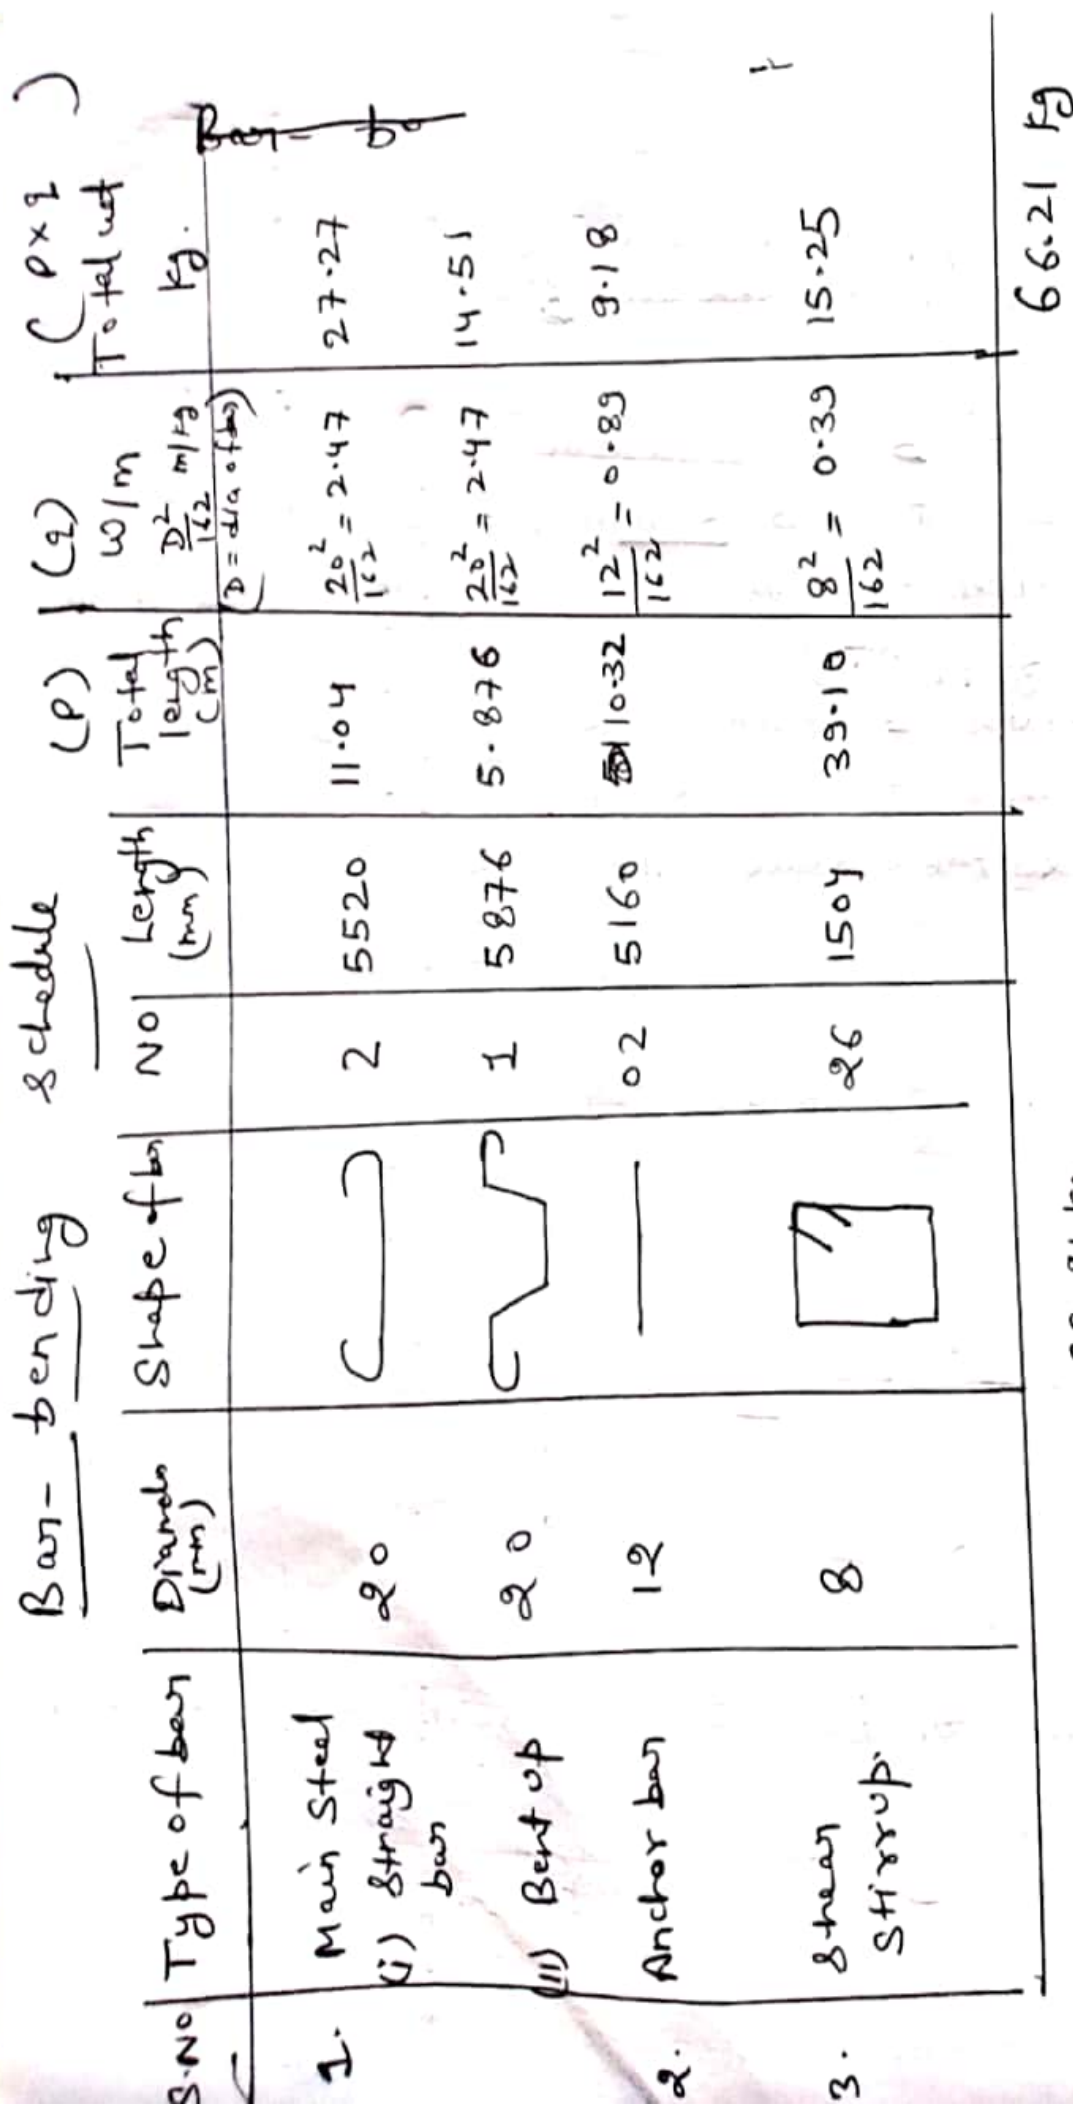 Bar-bending schedule
(P) (q) (P×q)
S.No Type of bar Diamde (mm) Shape of bar No Length (mm) Total length (m) W/m D²/162 m/kg (D = dia of bar) Total wt kg.
Bar- b
1. Main Steel
(i) Straight bar 20 2 5520 11.04 20²/162 = 2.47 27.27
(ii) Bent up 20 1 5876 5.876 20²/162 = 2.47 14.51
2. Anchor bar 12 02 5160 10.32 12²/162 = 0.89 9.18
3. Shear Stirrup. 8 26 1504 39.10 8²/162 = 0.39 15.25
66.21 kg